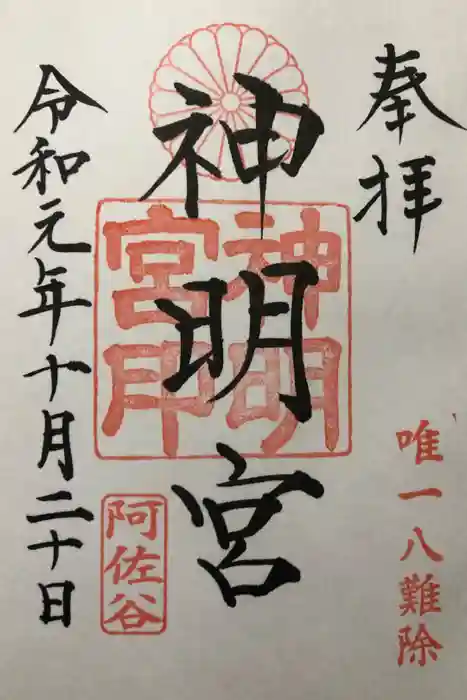 奉拝
唯一八難除
神明宮
神明
宮印
阿佐谷
令和元年十月二十日